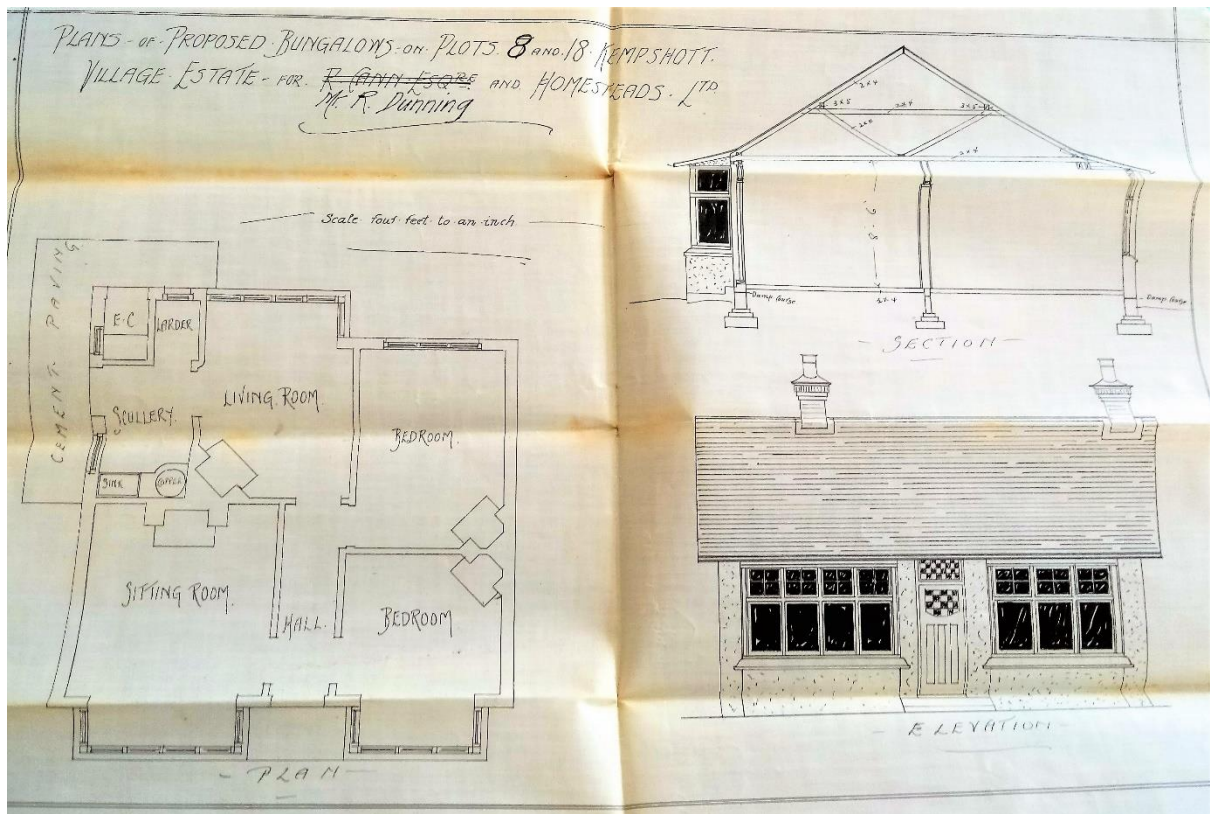 PLANS-OF-PROPOSED-BUNGALOWS-ON-PLOTS. 8 AND.18. KEMPSHOTT.
VILLAGE.ESTATE-FOR. R CANN ESQRE AND HOMESTEADS. LTD.
Mr. R. Dunning
Scale four feet to an inch
CEMENT PAVING
E.C
LARDER
SCULLERY.
LIVING.ROOM
BEDROOM.
SINK
COPPER
SITTING ROOM.
HALL.
BEDROOM
- PLAN -
2x4
3x5
2x4
3x5
2x4
9-8
Damp Course
2x4
Damp Course
- SECTION -
- ELEVATION -